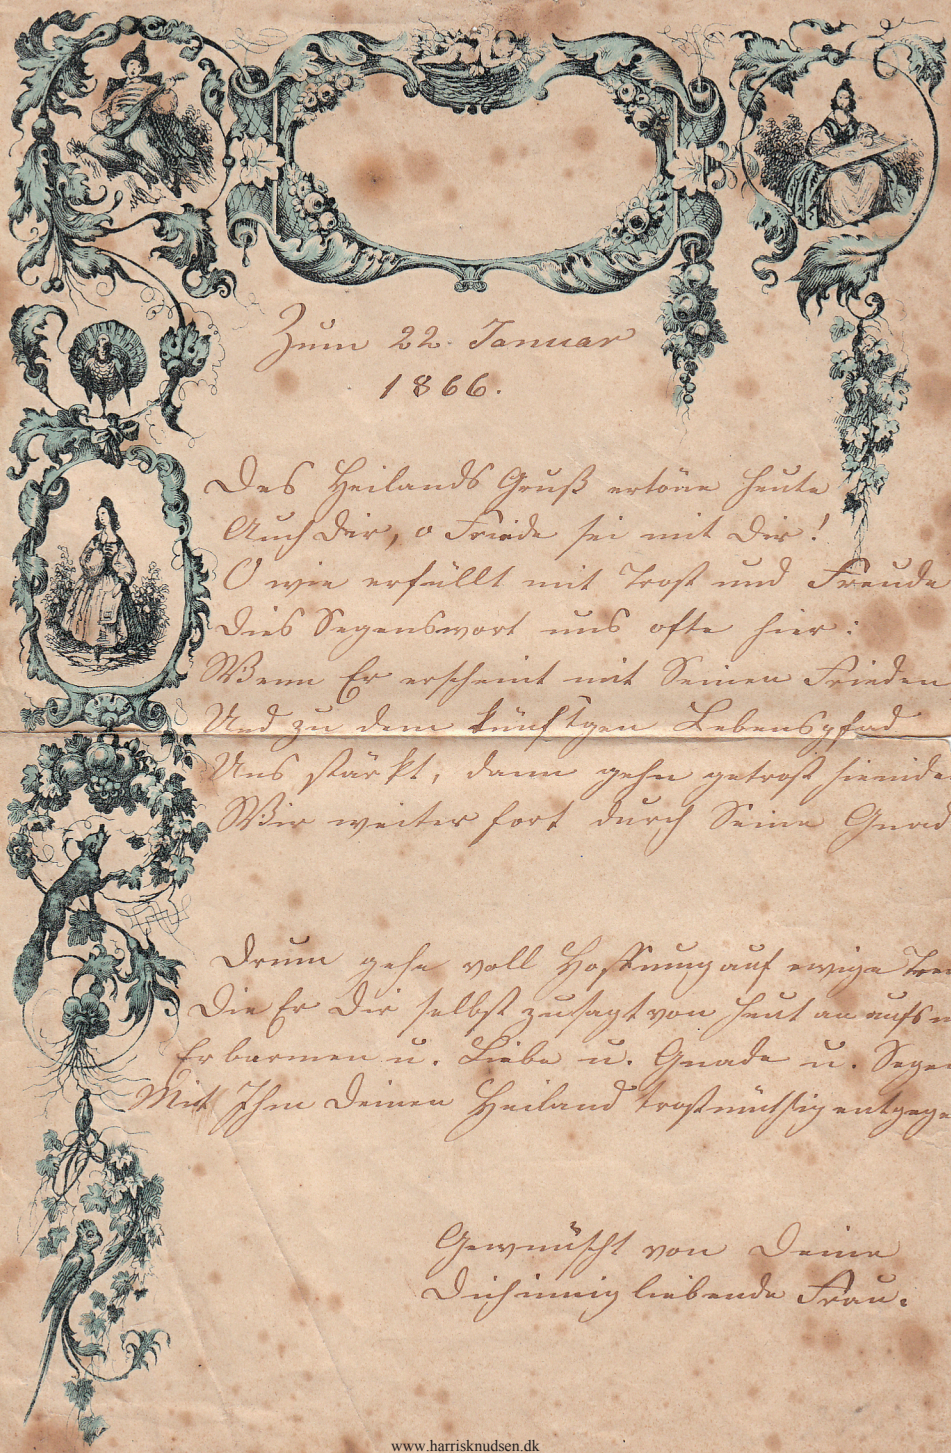 Zum 22. Januar
1866.
Des Heilands Gruß ertöne heute
Auch Dir, o Friede sei mit Dir!
O wie erfüllt mit Trost und Freude
Dies Segenswort uns ofte hier:
Wenn Er erscheint mit Seinen Frieden
Und zu dem künftgen Lebenspfad
Uns stärkt, dann gehn getrost hienide
Wir weiter fort durch Seine Gnad
Drum gehe voll Hoffnung auf ewige Treu
Die Er Dir selbst zusagt von heut an aufs n
Erbarmen u. Liebe u. Gnade u. Segen
Mit Ihm Deinen Heiland trostmüthig entgege
Gewünscht von Deine
Dich innig liebende Frau.
www.harrisknudsen.dk